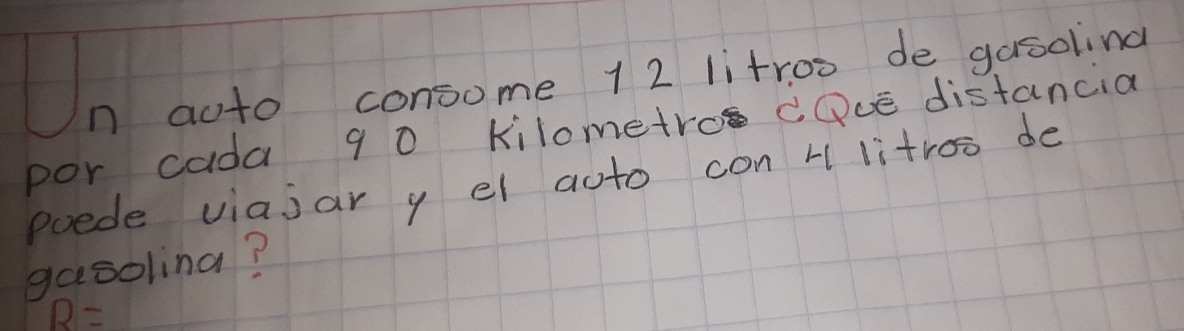 Un auto consome 12 litros de gasolina
por cada 90 Kilometros ¿Qué distancia
puede viajar y el auto con 4 litros de
gasolina?
R=